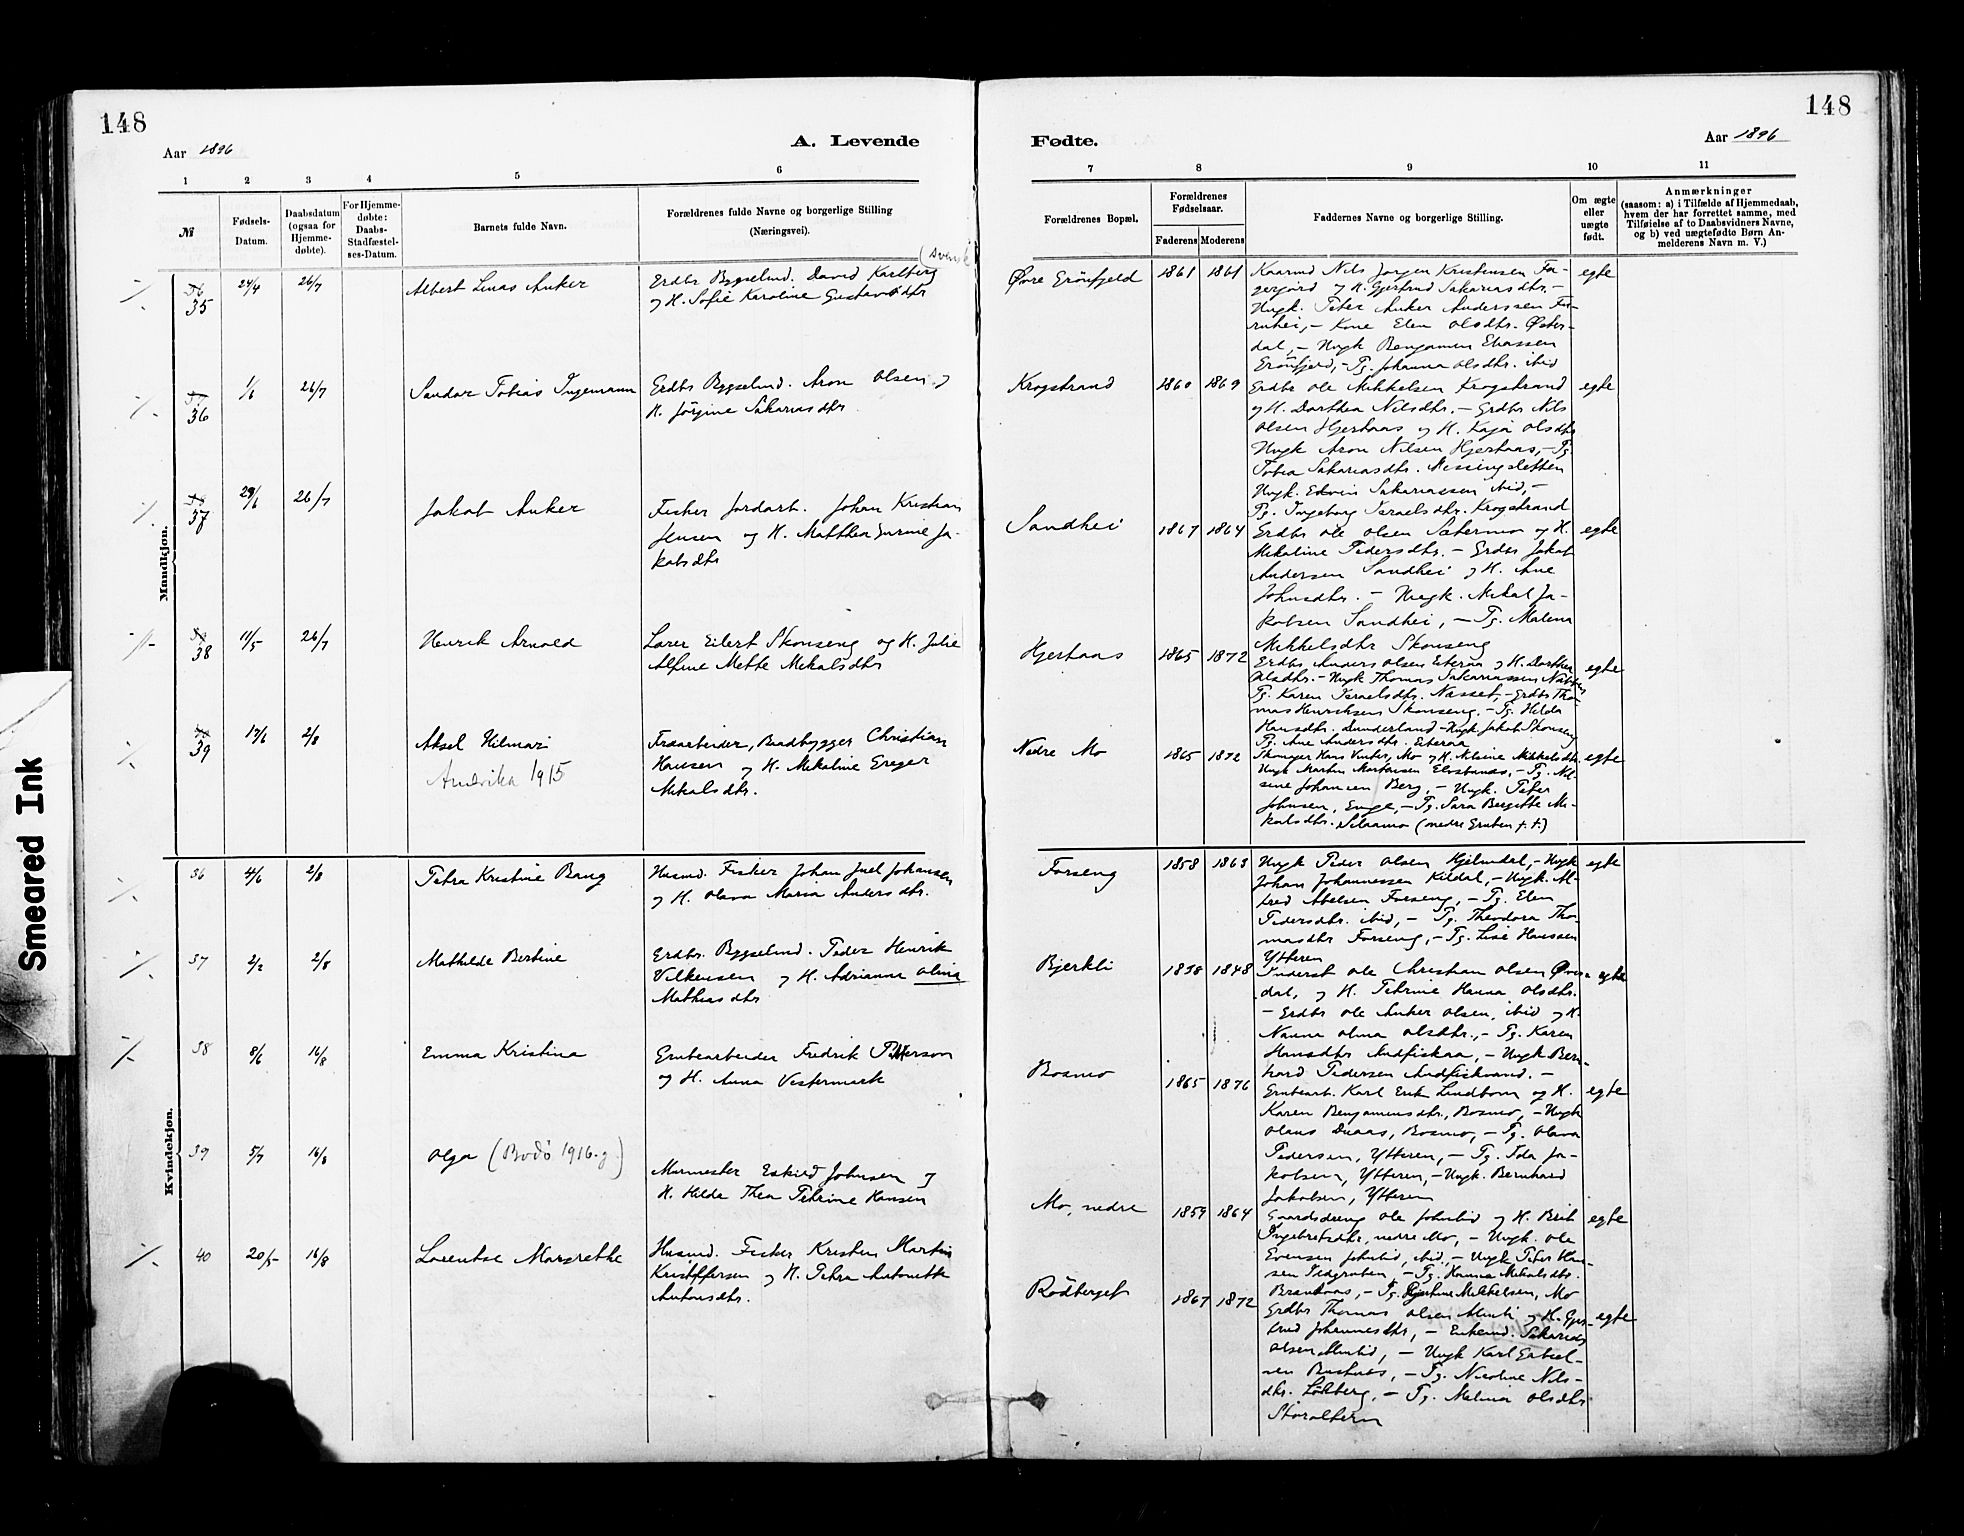 148
148
Aar 1896
A. Levende
Fødte.
Aar 1896
1 2 3 4 5 6 7 8 9 10 11
№
Fødsels-
Datum.
Daabsdatum
(ogsaa for
Hjemme-
døbte).
For Hjemme-
døbte:
Daabs-
Stadfæstel-
ses-Datum.
Barnets fulde Navn.
Forældrenes fulde Navne og borgerlige Stilling
(Næringsvei).
Forældrenes Bopæl.
Forældrenes
Fødselsaar.
Faderens Moderens
Faddernes Navne og borgerlige Stilling.
Om ægte
eller
uægte
født.
Anmærkninger
(saasom: a) i Tilfælde af Hjemmedaab,
hvem der har forrettet samme, med
Tilføielse af to Daabsvidners Navne,
og b) ved uægtefødte Børn An-
melderens Navn m. V.)
Mandkjøn.
35 24/4 26/7
Albert Linas Anker
(Svensk
Erdbr Bygselmd. David Karlberg
og H. Sofie Karoline Gustavsdtr
Øvre Grönfjeld 1861 1861
Kaarmd Nils Jørgen Kristensen
og H. Gjertrud Sakariasdtr. -
Ungk. Peter Anker Anderssen
Kone Elen Olsdtr. Øster-
dal, - Ungk Benjamin Eliassen
Grönfjeld, - Pg. Johanna Olsdtr. ibid
egte
36 1/6 26/7
Sandar Tobias Ingemann
Erdbr Bygselmd. Aron Olsen og
H. Jörgine Sakariasdtr
Krogstrand 1860 1869
Erdbr Ole Mikkelsen Krogstrand
og H. Dorthea Nilsdtr. - Erdbr Nils
Olsen Hjerhaas og H. Kaja Olsdtr
Ungk Aron Nilsen Hjerhaas, - Pg.
Tobia Sakariasdtr. Messingsletten
Ungk. Edvin Sakariassen ibid, -
Pg. Ingeborg Israelsdtr. Krogstrand
egte
37 29/6 26/7
Jakob Anker
Fisker Jordarb. Johan Kristian
Jensen og H. Matthea Gurine Ja-
kobsdtr
Sandhei 1867 1864
Erdbr Ole Olsen Sætermo og H.
Mekaline Pedersdtr. - Erdbr Jakob
Andersen Sandhei og H. Ane
Johnsdtr. - Ungk. Mekal Ja-
kobsen Sandhei, - Pg. Malena
Mikkelsdtr Skonseng
egte
38 11/5 26/7
Henrik Arnold
Lærer Eilert Skonseng og H. Julie
Alfine Mette Mekalsdtr
Hjerhaas 1865 1872
Erdbr Anders Olsen Eiteraa og H. Dorthea
Olsdtr. - Ungk Thomas Sakariassen
Pg. Karen Israelsdtr. Næsset, - Erdbr Tho-
mas Henriksen Skonseng. - Pg. Hilda
Hansdtr. Dunderland - Ungk. Jakob Skonseng
Pg. Ane Andersdtr. Eiteraa
egte
39 17/6 2/8
Aksel Hilmar
Amerika 1915
Jordarbeider, Baadbygger Christian
Hansen og H. Mekaline Greger
Mekalsdtr.
Nedre Mo 1865 1872
Skomager Hans Vinter, Mo og H. Nilsine Mikkelsdtr
Ungk Martin Mortensen - Pg. Nil-
sine Johansen Berg, - Ungk. Peter
Johnsen, Enge, - Pg. Sara Bergitte Me-
kalsdtr. Selaamo (nedre Gruben p. t.)
egte
Kvindekjøn.
36 4/6 2/8
Petra Kristine Bang
Husmd. Fisker Johan Juel Johansen
og H. Olava Maria Andersdtr.
Forseng 1858 1863
Ungk Peder Olsen Hjelmdal, - Ungk
Johan Johannessen Kildal, - Ungk. Al-
fred Abelsen Forseng, - Pg. Elen
Pedersdtr. ibid, - Pg. Theodora Tho-
masdtr Forseng, - Pg. Lise Hanssen
Ytteren
egte
37 2/2 2/8
Mathilde Bertine
Erdbr. Bygselmd. Peder Henrik
Vilkensen og H. Adrianna Olina
Mathiasdtr
Bjerkli 1838 1848
Inderst Ole Christian Olsen
dal, og H. Petrine Hanna Olsdtr.
- Erdbr Ole Anker Olsen, ibid og H.
Nanna Olina Olsdtr., - Pg. Karen
Hansdtr Andfiskaa, - Ungk Bern-
hard Pedersen Andfiskvand. -
egte
38 8/6 16/8
Emma Kristina
Grubearbeider Fredrik Petterson
og H. Anna Vestermark
Bosmo 1865 1876
Grubearb. Karl Erik Lindbom og H.
Karen Benjaminsdtr., Bosmo, - Ungk
Olaus Draas, Bosmo, - Pg. Olava
Pedersen, Ytteren, - Pg. Ida Ja-
kobsen, Ytteren, - Ungk. Bernhard
Jakobsen, Ytteren
egte
39 5/7 16/8
Olga (Bodö 1916. g.)
Murmester Eskild Johnsen og
H. Hilda Thea Petrine Hansen
Mo, nedre 1859 1864
Gaardsdreng Ole Johnlid og H. Berit
Ingebretsdtr, nedre Mo, - Ungk. Ole
Evensen Johnlid, ibid, - Ungk Peter Han-
sen - Pg. Hanna Mekalsdtr.
Brenhaas, - Pg. Mikkelsen, Mo
egte
40 20/5 16/8
Lorentse Margrethe
Husmd. Fisker Kristen Martin
Kristoffersen og H. Petra Antonette
Antonsdtr.
Rödberget 1867 1872
Erdbr Thomas Olsen Almli og H. Gjer-
trud Johannesdtr, - Enkemd. Sakarias
Olsen - Ungk Karl Gabriel-
sen - Pg. Nicoline Nils-
dtr. - Pg. Melina Olsdtr
Storalteren
egte
Smeared Ink